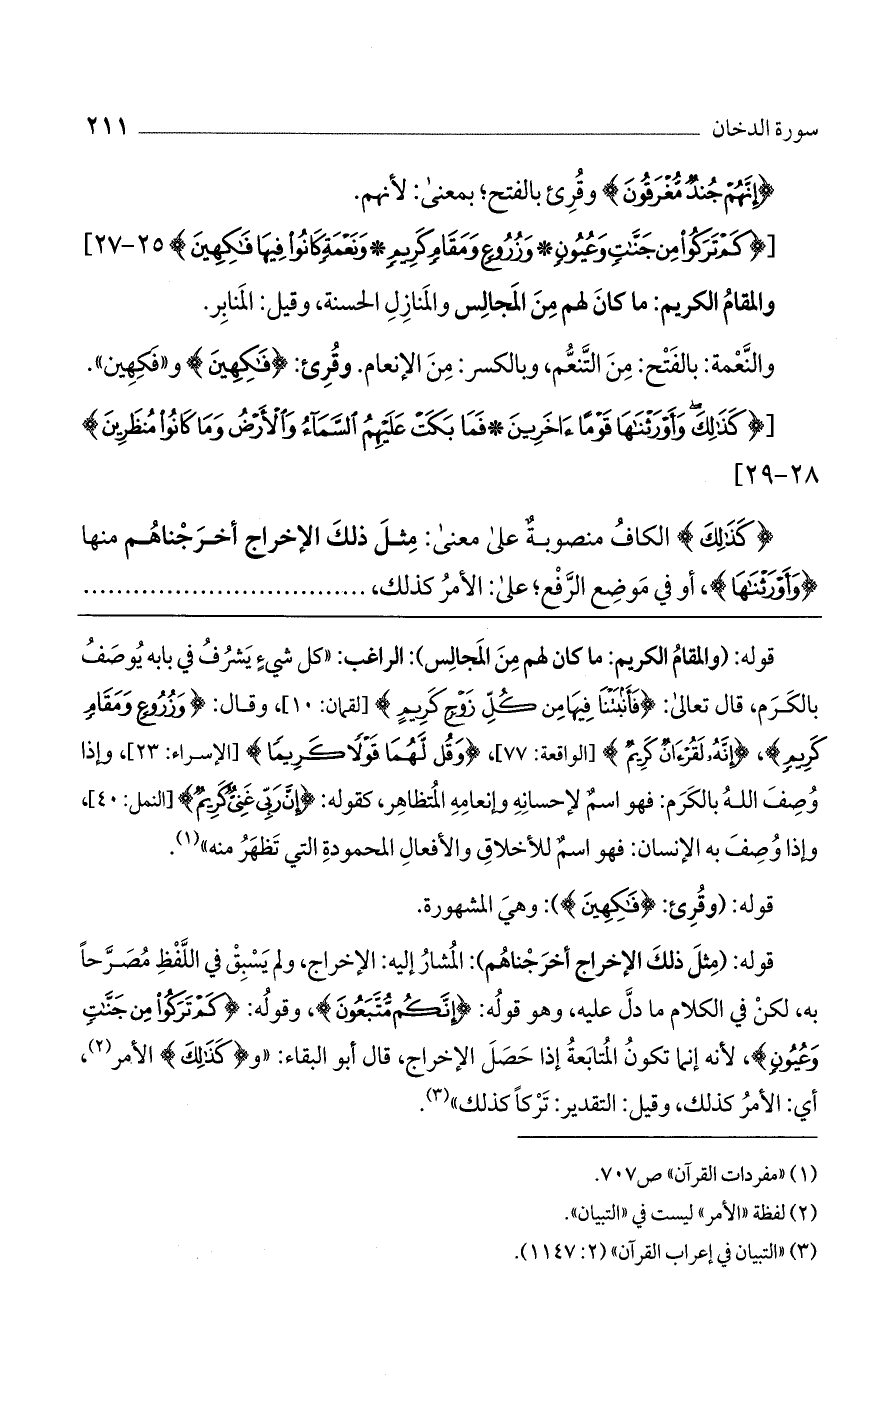 سورة الدخان ٢١١
﴿إِنَّهُمْ جُندٌ مُّغْرَقُونَ﴾ وقُرِئ بالفتح؛ بمعنىٰ: لأنهم.
[﴿كَمْ تَرَكُوا۟ مِن جَنَّـٰتٍ وَعُيُونٍ * وَزُرُوعٍ وَمَقَامٍ كَرِيمٍ * وَنَعْمَةٍ كَانُوا۟ فِيهَا فَـٰكِهِينَ﴾ ٢٥-٢٧]
والمقامُ الكريم: ما كانَ لهم مِنَ المَجالِس والمَنازِلِ الحسنة، وقيل: المَنابِر.
والنَّعْمة: بالفَتْح: مِنَ التَّنعُّم، وبالكسر: مِنَ الإنعام. وقُرِئ: ﴿فَـٰكِهِينَ﴾ و«فَكِهِين».
[﴿كَذَٰلِكَ ۖ وَأَوْرَثْنَـٰهَا قَوْمًا ءَاخَرِينَ * فَمَا بَكَتْ عَلَيْهِمُ ٱلسَّمَآءُ وَٱلْأَرْضُ وَمَا كَانُوا۟ مُنظَرِينَ﴾
٢٨-٢٩]
﴿كَذَٰلِكَ﴾ الكافُ منصوبةٌ علىٰ معنىٰ: مِثلَ ذلكَ الإخراجِ أخرَجْناهُم منها
﴿وَأَوْرَثْنَـٰهَا﴾، أو في مَوضِع الرَّفْع؛ علىٰ: الأمرُ كذلك، .................................
قوله: (والمقامُ الكريم: ما كان لهم مِنَ المَجالِس): الراغب: «كل شيءٍ يَشرُفُ في بابه يُوصَفُ
بالكَرَم، قال تعالىٰ: ﴿فَأَنۢبَتْنَا فِيهَا مِن كُلِّ زَوْجٍ كَرِيمٍ﴾ [لقمان: ١٠]، وقال: ﴿وَزُرُوعٍ وَمَقَامٍ
كَرِيمٍ﴾، ﴿إِنَّهُۥ لَقُرْءَانٌ كَرِيمٌ﴾ [الواقعة: ٧٧]، ﴿وَقُل لَّهُمَا قَوْلًا كَرِيمًا﴾ [الإسراء: ٢٣]، وإذا
وُصِفَ اللهُ بالكَرَم: فهو اسمٌ لإحسانِهِ وإنعامِهِ المُتظاهِر، كقوله: ﴿إِنَّ رَبِّى غَنِىٌّ كَرِيمٌ﴾ [النمل: ٤٠]،
وإذا وُصِفَ به الإنسان: فهو اسمٌ للأخلاقِ والأفعالِ المحمودةِ التي تَظهَرُ منه»(١).
قوله: (وقُرِئ: ﴿فَـٰكِهِينَ﴾): وهيَ المشهورة.
قوله: (مِثلَ ذلكَ الإخراجِ أخرَجْناهُم): المُشارُ إليه: الإخراج، ولم يَسبِقْ في اللَّفْظِ مُصَرَّحاً
به، لكنْ في الكلام ما دلَّ عليه، وهو قولُه: ﴿إِنَّكُم مُّتَّبَعُونَ﴾، وقولُه: ﴿كَمْ تَرَكُوا۟ مِن جَنَّـٰتٍ
وَعُيُونٍ﴾، لأنه إنما تكونُ المُتابَعةُ إذا حَصَلَ الإخراج، قال أبو البقاء: «و﴿كَذَٰلِكَ﴾ الأمر(٢)،
أي: الأمرُ كذلك، وقيل: التقدير: تَرْكاً كذلك»(٣).
(١) «مفردات القرآن» ص٧٠٧.
(٢) لفظة «الأمر» ليست في «التبيان».
(٣) «التبيان في إعراب القرآن» (٢: ١١٤٧).